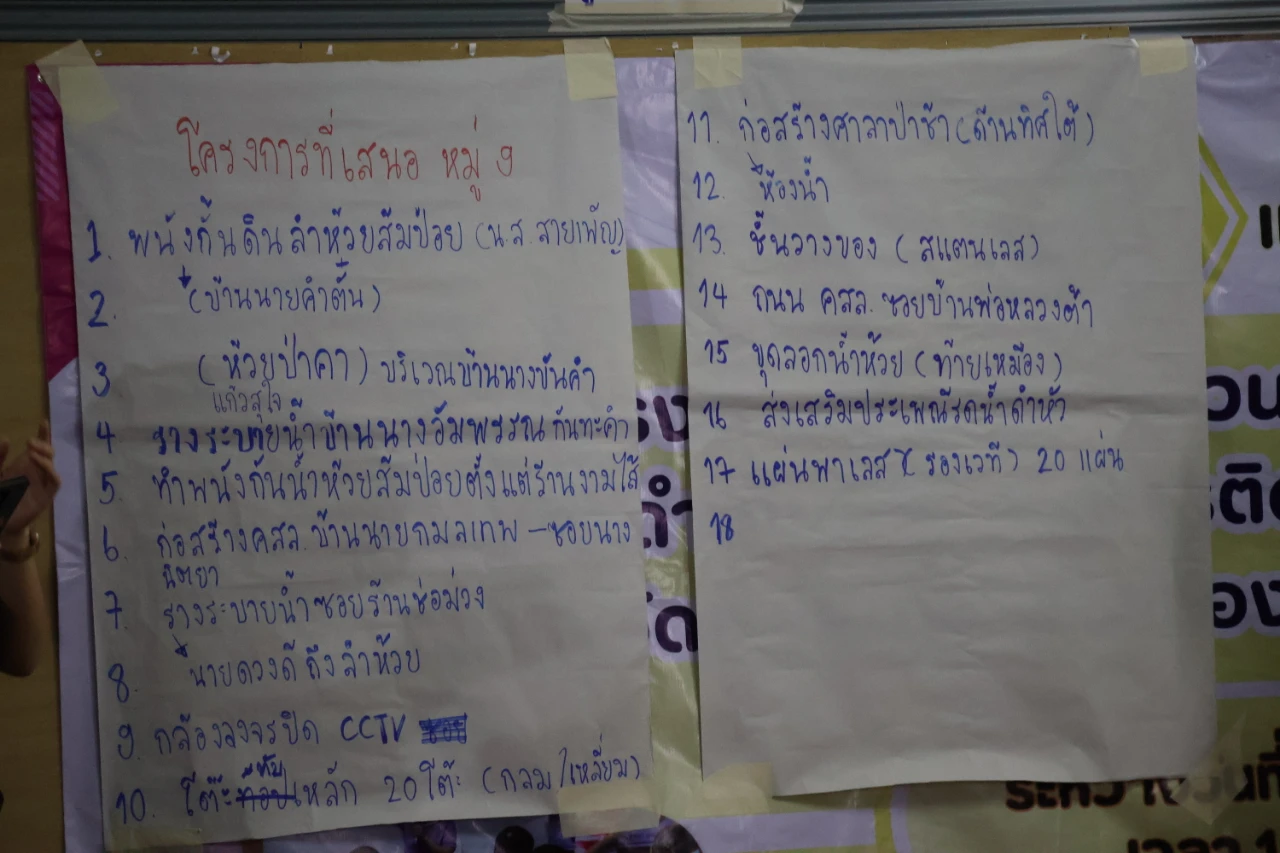 โครงการที่เสนอ หมู่ 9
1. พนังกั้นดินลำห้วยส้มป่อย (น.ส. สายเพ็ญ)
2. (บ้านนายคำตั้น)
3 (ห้วยป่าคา) บริเวณบ้านนางขันคำ
แก้วสุใจ
4 รางระบายน้ำบ้านนางอัมพรรณ กันทะคำ
5 ทำพนังกั้นน้ำห้วยส้มป่อยตั้งแต่ร้านงามไส้
6. ก่อสร้างคสล. บ้านนายกมลเทพ - ซอยนาง
นิตยา
7. รางระบายน้ำซอยร้านช่อม่วง
8. นายดวงดี ถึง ลำห้วย
9. กล้องวงจรปิด CCTV
10. โต๊ะพับเหล็ก 20 โต๊ะ (กลม/เหลี่ยม)
11. ก่อสร้างศาลาป่าช้า (ด้านทิศใต้)
12. ห้องน้ำ
13. ชั้นวางของ (สแตนเลส)
14 ถนน คสล. ซอยบ้านพ่อหลวงต๋า
15 ขุดลอกน้ำห้วย (ท้ายเหมือง)
16 ส่งเสริมประเพณีรดน้ำดำหัว
17 แผ่นพาเลส (รองเวที) 20 แผ่น
18